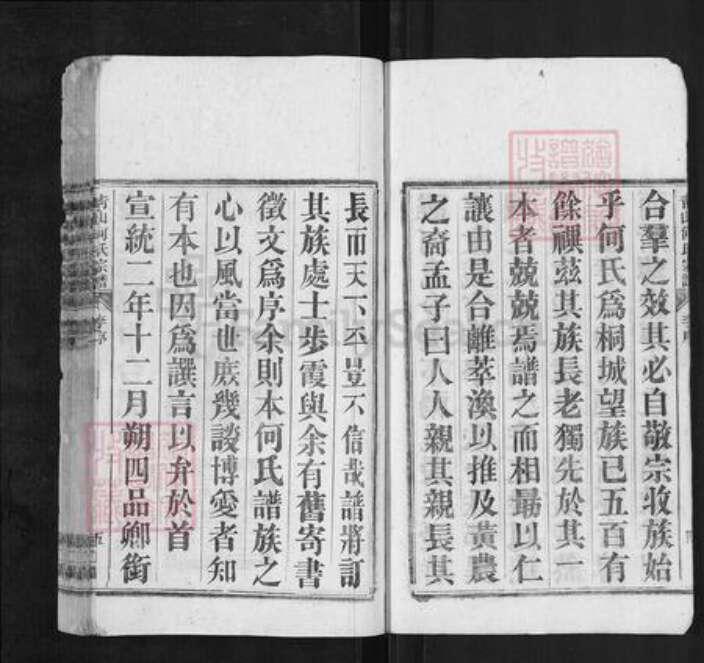 合羣之效其必自敬宗收族始
乎何氏爲桐城望族已五百有
餘禩茲其族長老獨先於其一
本者兢兢焉譜之而相勗以仁
讓由是合離萃渙以推及黃農
之裔孟子曰人人親其親長其
長而天下平豈不信哉譜將訂
其族處士步霞與余有舊寄書
徵文爲序余則本何氏譜族之
心以風當世庶幾談博愛者知
有本也因爲譔言以弁於首
宣統二年十二月朔四品卿銜
青山何氏宗譜
五